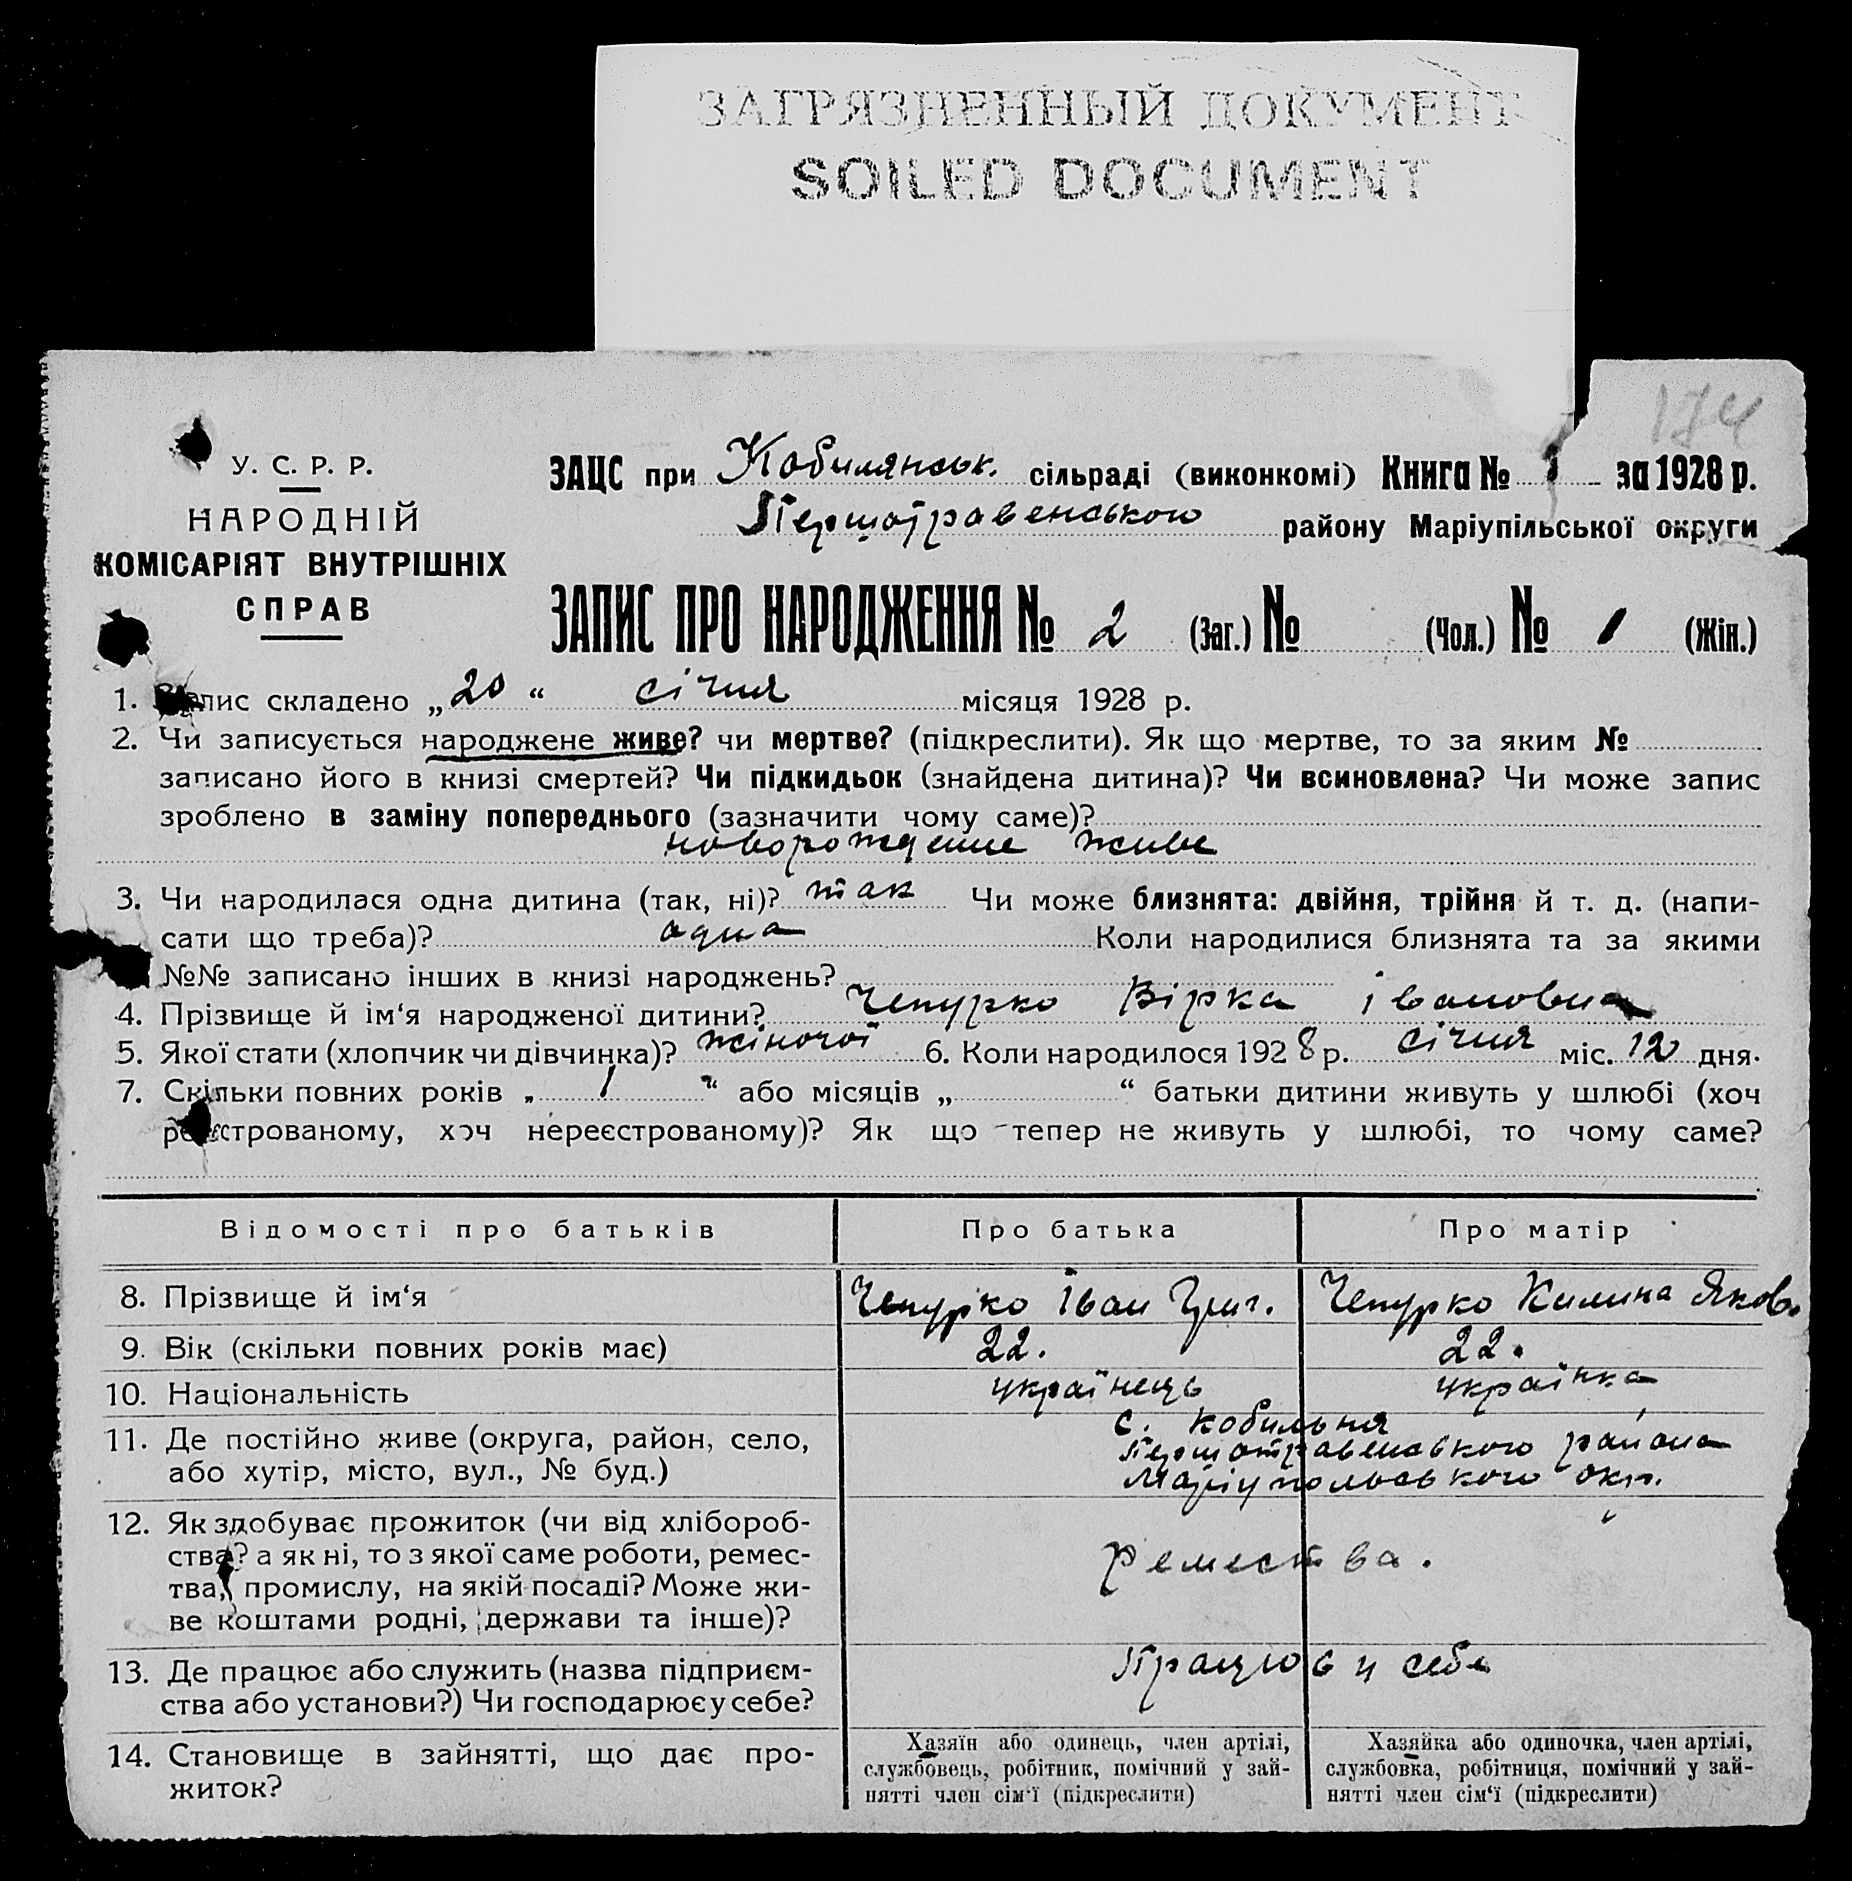 ЗАГРЯЗНЕННЫЙ ДОКУМЕНТ
SOILED DOCUMENT
174
У. С. Р. Р.
НАРОДНІЙ
КОМІСАРІЯТ ВНУТРІШНІХ
СПРАВ
ЗАЦС при Кобилянськ. сільраді (виконкомі) Книга № 1 за 1928 р.
Першотравенського району Маріупільської округи
ЗАПИС ПРО НАРОДЖЕННЯ № 2 (Заг.) № (Чол.) № 1 (Жін.)
1. Запис складено „20“ січня місяця 1928 р.
2. Чи записується народжене живе? чи мертве? (підкреслити). Як що мертве, то за яким №
записано його в книзі смертей? Чи підкидьок (знайдена дитина)? Чи всиновлена? Чи може запис
зроблено в заміну попереднього (зазначити чому саме)?
новорождение живе
3. Чи народилася одна дитина (так, ні)? так Чи може близнята: двійня, трійня й т. д. (напи-
сати що треба)? одна Коли народилися близнята та за якими
№№ записано інших в книзі народжень?
4. Прізвище й ім‘я народженої дитини? Чепурко Вірка Івановна
5. Якої стати (хлопчик чи дівчинка)? жіночої 6. Коли народилося 1928 р. січня міс. 12 дня.
7. Скільки повних років „ 1 “ або місяців „ “ батьки дитини живуть у шлюбі (хоч
реєстрованому, хоч нереєстрованому)? Як що тепер не живуть у шлюбі, то чому саме?
Відомості про батьків Про батька Про матір
8. Прізвище й ім‘я Чепурко Іван Григ. Чепурко Килина Яков.
9. Вік (скільки повних років має) 22. 22.
10. Національність українець українка
11. Де постійно живе (округа, район, село,
або хутір, місто, вул., № буд.)
с. Кобильня
Першотравенського района
Маріупольського окр.
12. Як здобуває прожиток (чи від хлібороб-
ства? а як ні, то з якої саме роботи, ремес-
тва, промислу, на якій посаді? Може жи-
ве коштами родні, держави та інше)?
Ремества.
13. Де працює або служить (назва підприєм-
ства або установи?) Чи господарює у себе?
Працюв у себе
14. Становище в зайнятті, що дає про-
житок?
Хазяїн або одинець, член артілі,
службовець, робітник, помічний у зай-
нятті член сім‘ї (підкреслити)
Хазяйка або одиночка, член артілі,
службовка, робітниця, помічний у зай-
нятті член сім‘ї (підкреслити)